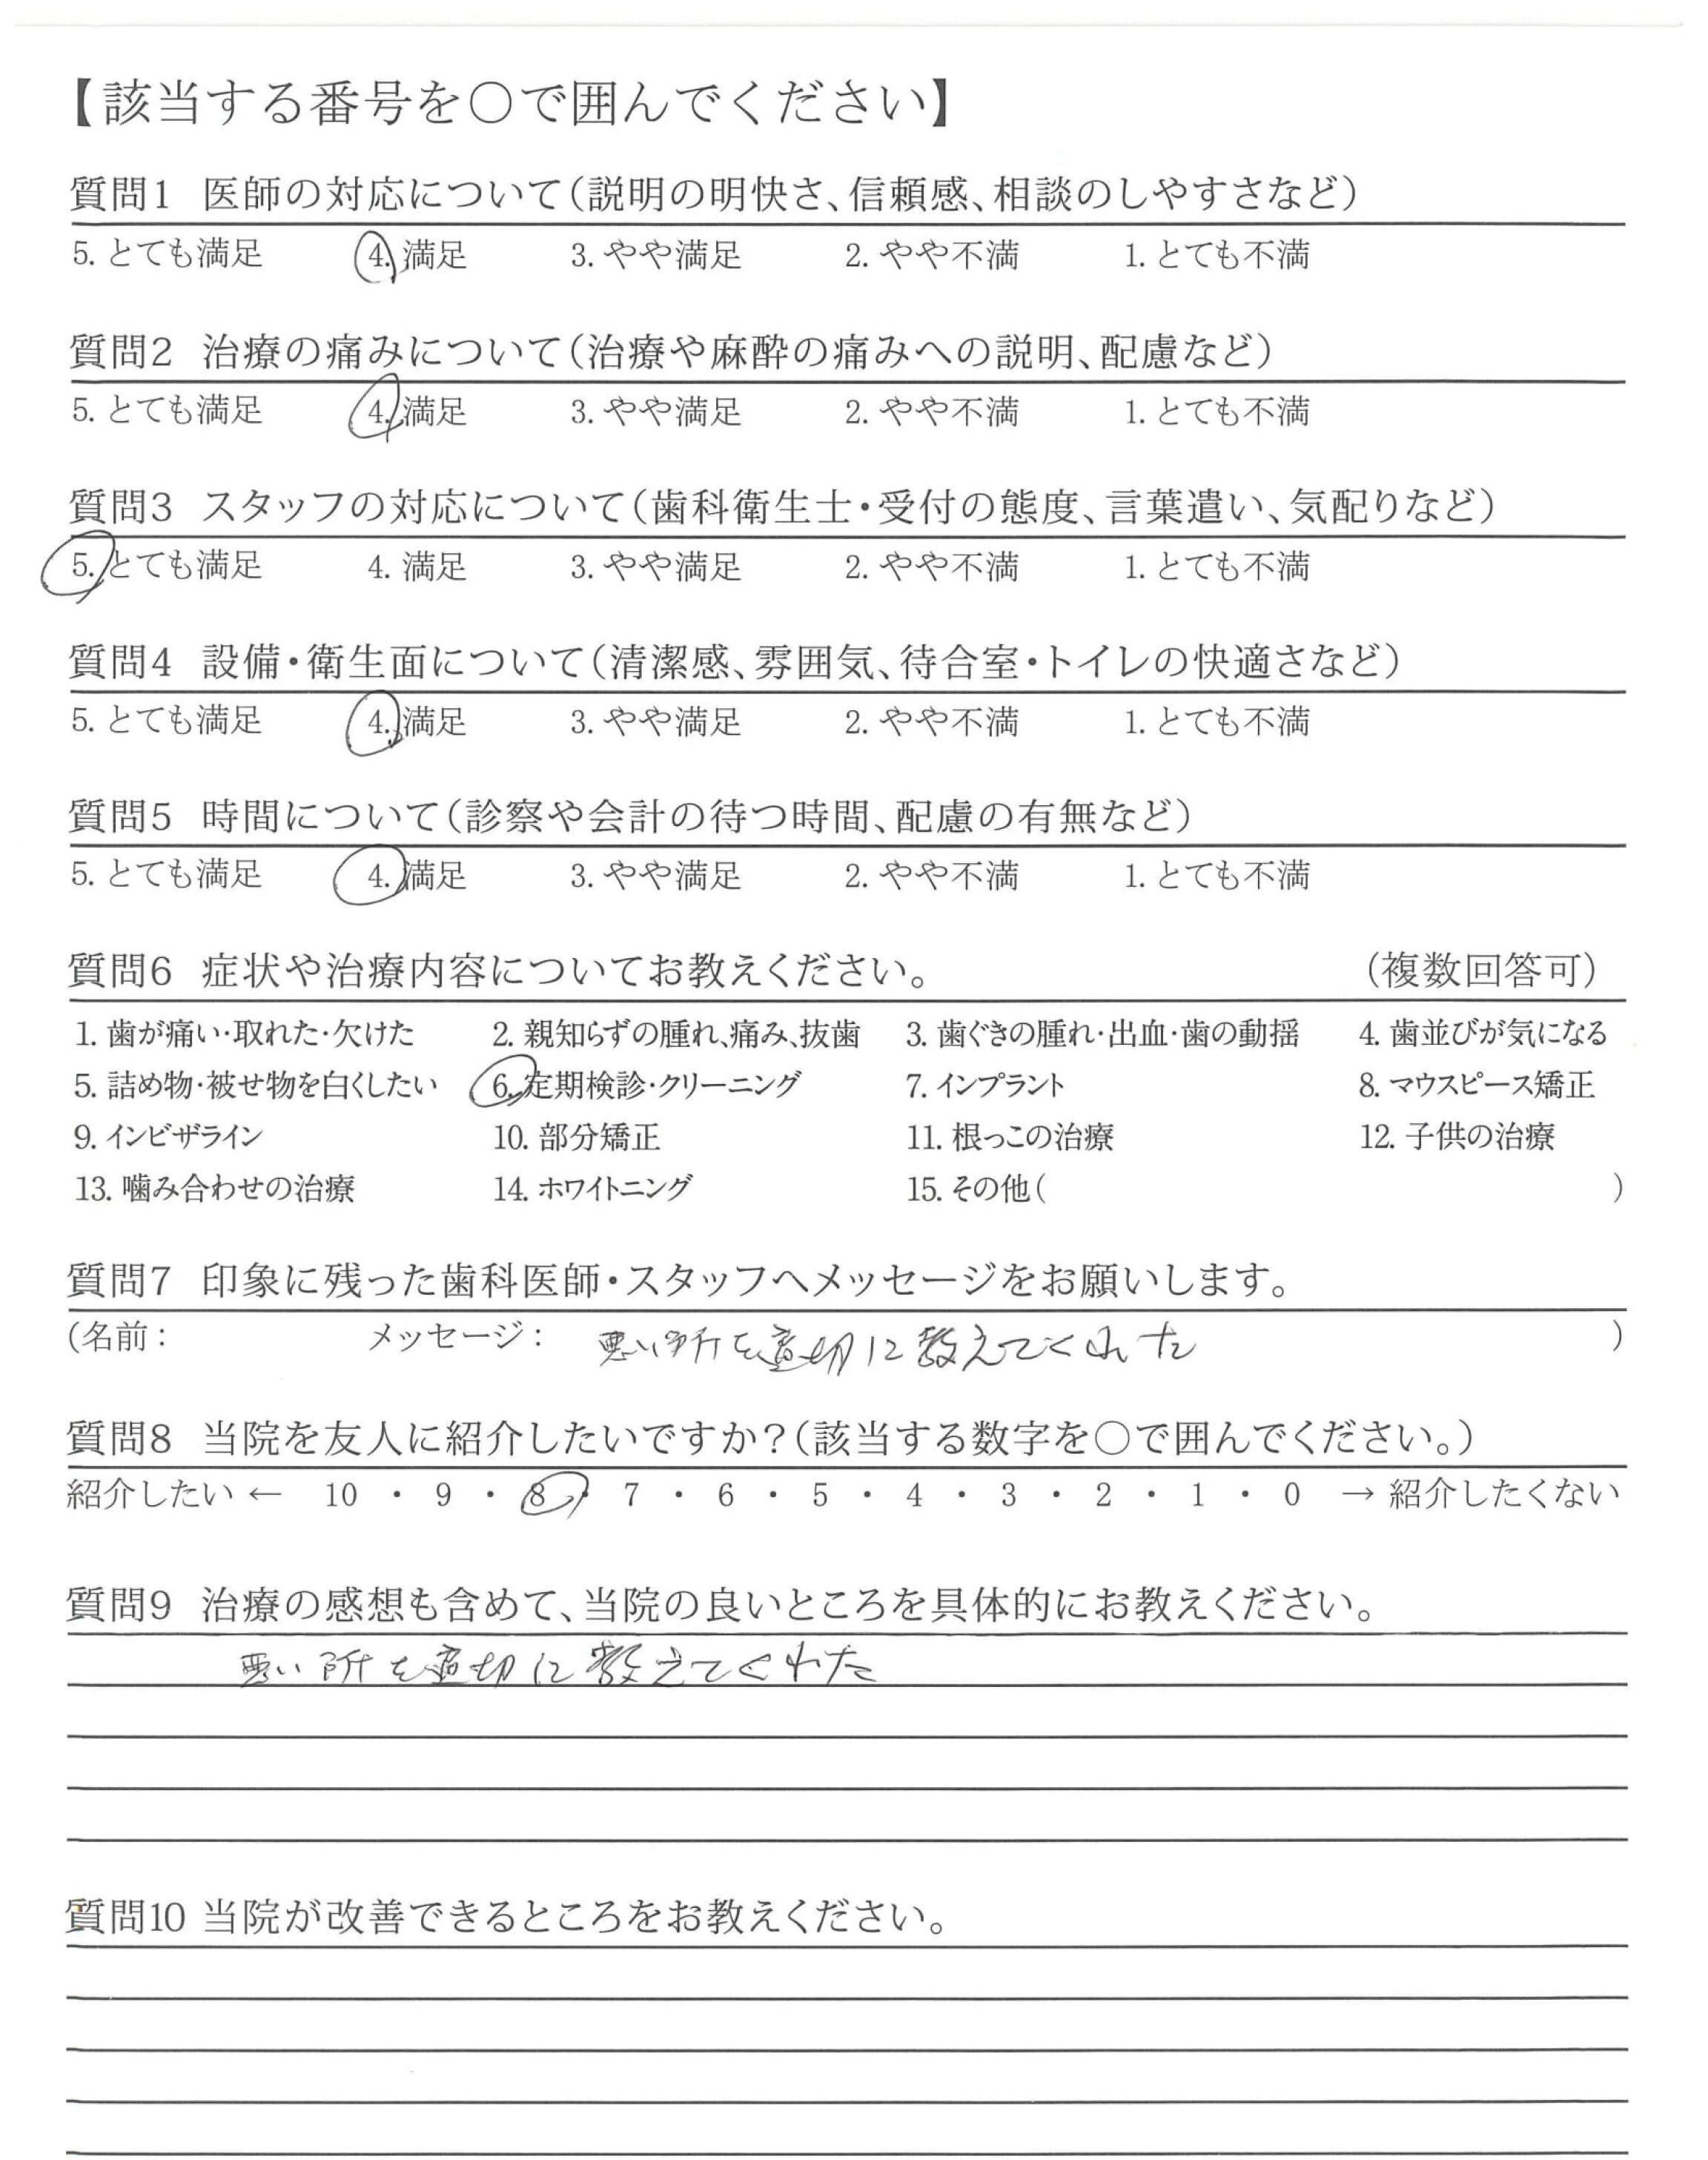 【該当する番号を○で囲んでください】
質問1 医師の対応について(説明の明快さ、信頼感、相談のしやすさなど)
5. とても満足 4. 満足 3. やや満足 2. やや不満 1. とても不満
質問2 治療の痛みについて(治療や麻酔の痛みへの説明、配慮など)
5. とても満足 4. 満足 3. やや満足 2. やや不満 1. とても不満
質問3 スタッフの対応について(歯科衛生士・受付の態度、言葉遣い、気配りなど)
5. とても満足 4. 満足 3. やや満足 2. やや不満 1. とても不満
質問4 設備・衛生面について(清潔感、雰囲気、待合室・トイレの快適さなど)
5. とても満足 4. 満足 3. やや満足 2. やや不満 1. とても不満
質問5 時間について(診察や会計の待つ時間、配慮の有無など)
5. とても満足 4. 満足 3. やや満足 2. やや不満 1. とても不満
質問6 症状や治療内容についてお教えください。 (複数回答可)
1. 歯が痛い・取れた・欠けた 2. 親知らずの腫れ、痛み、抜歯 3. 歯ぐきの腫れ・出血・歯の動揺 4. 歯並びが気になる
5. 詰め物・被せ物を白くしたい 6. 定期検診・クリーニング 7. インプラント 8. マウスピース矯正
9. インビザライン 10. 部分矯正 11. 根っこの治療 12. 子供の治療
13. 噛み合わせの治療 14. ホワイトニング 15. その他( )
質問7 印象に残った歯科医師・スタッフへメッセージをお願いします。
(名前: メッセージ: 悪い所を適切に教えてくれた )
質問8 当院を友人に紹介したいですか?(該当する数字を○で囲んでください。)
紹介したい ← 10 ・ 9 ・ 8 ・ 7 ・ 6 ・ 5 ・ 4 ・ 3 ・ 2 ・ 1 ・ 0 → 紹介したくない
質問9 治療の感想も含めて、当院の良いところを具体的にお教えください。
悪い所を適切に教えてくれた
質問10 当院が改善できるところをお教えください。